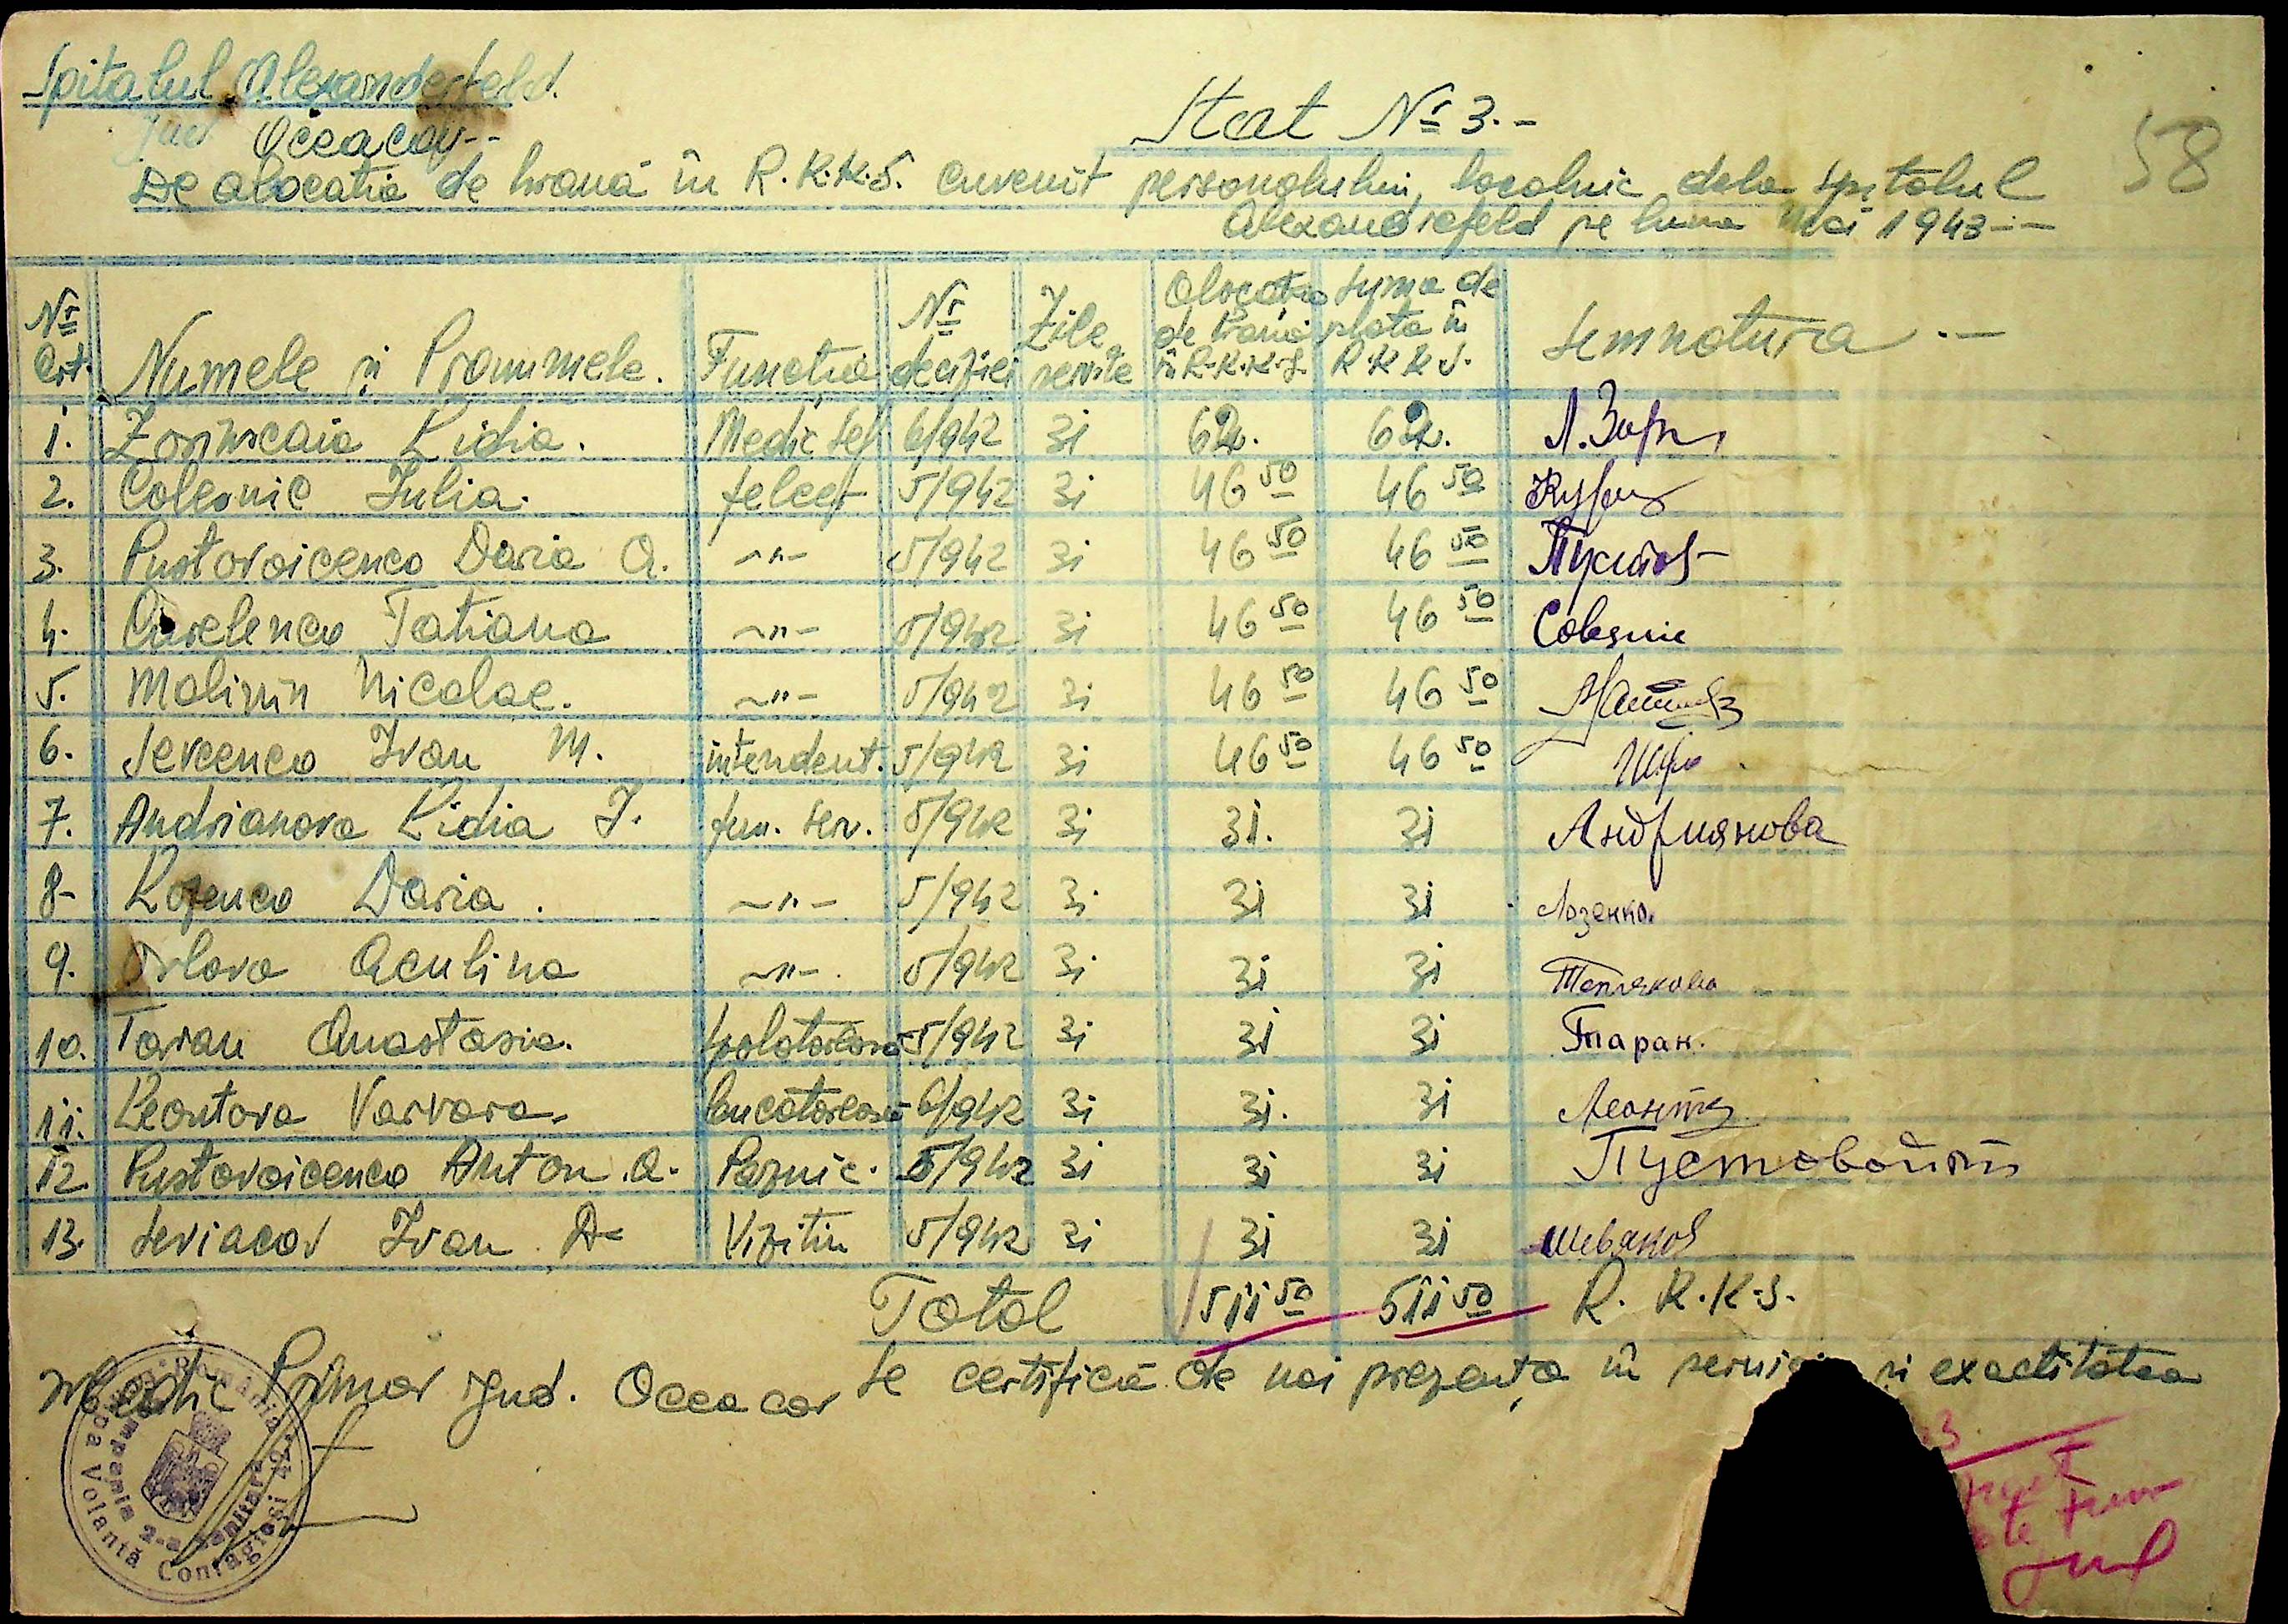 Spitalul Alexanderfeld.
Jud Oceacov--
Stat Nr 3.-
58
De alocatia de hrană în R.K.K.S. cuvenit personalului localnic dela spitalul
Alexandrefeld pe luna Mai 1943--
Nr Crt. Numele și Pronumele. Functia Nr deciziei Zile servite Alocatia de hrană în R.K.K.S. Suma de plata în R.K.K.S. Semnatura.-
1. Zorinscaia Lidia. Medic șef 6/942 31 62. 62. Л.Зори
2. Colesnic Iulia. felcer 5/942 31 46 50 46 50
3. Pustovoicenco Daria A. -"- 5/942 31 46 50 46 50 Пустов
4. Curelenco Tatiana -"- 5/942 31 46 50 46 50 Colesnic
5. Malinin Nicolae. -"- 5/942 31 46 50 46 50
6. Sevcenco Ivan M. intendent. 5/942 31 46 50 46 50
7. Andrianova Lidia I. fem. serv. 5/942 31 31. 31 Андриянова
8- Lozenco Daria. -"- 5/942 31 31 31 Лозенко.
9. Orlova Aculina -"-. 5/942 31 31 31 Теплякова
10. Taran Anastasia. spalatoreasă 5/942 31 31 31 Таран.
11. Leontova Varvara. bucătoreasă 6/942 31 31. 31 Леонт
12 Pustovoicenco Anton A. Paznic. 5/942 31 31 31 Пустовойт
13. Seviacov Ivan D- Vizitiu 5/942 31 31 31 Шевяков
Total 511 50 511 50 R. K.K.S.
Se certifică de noi prezența în și exactitatea
Medic Primar Jud. Oceacov
România
Compania 2-a Sanitară
Volantă Contagioși